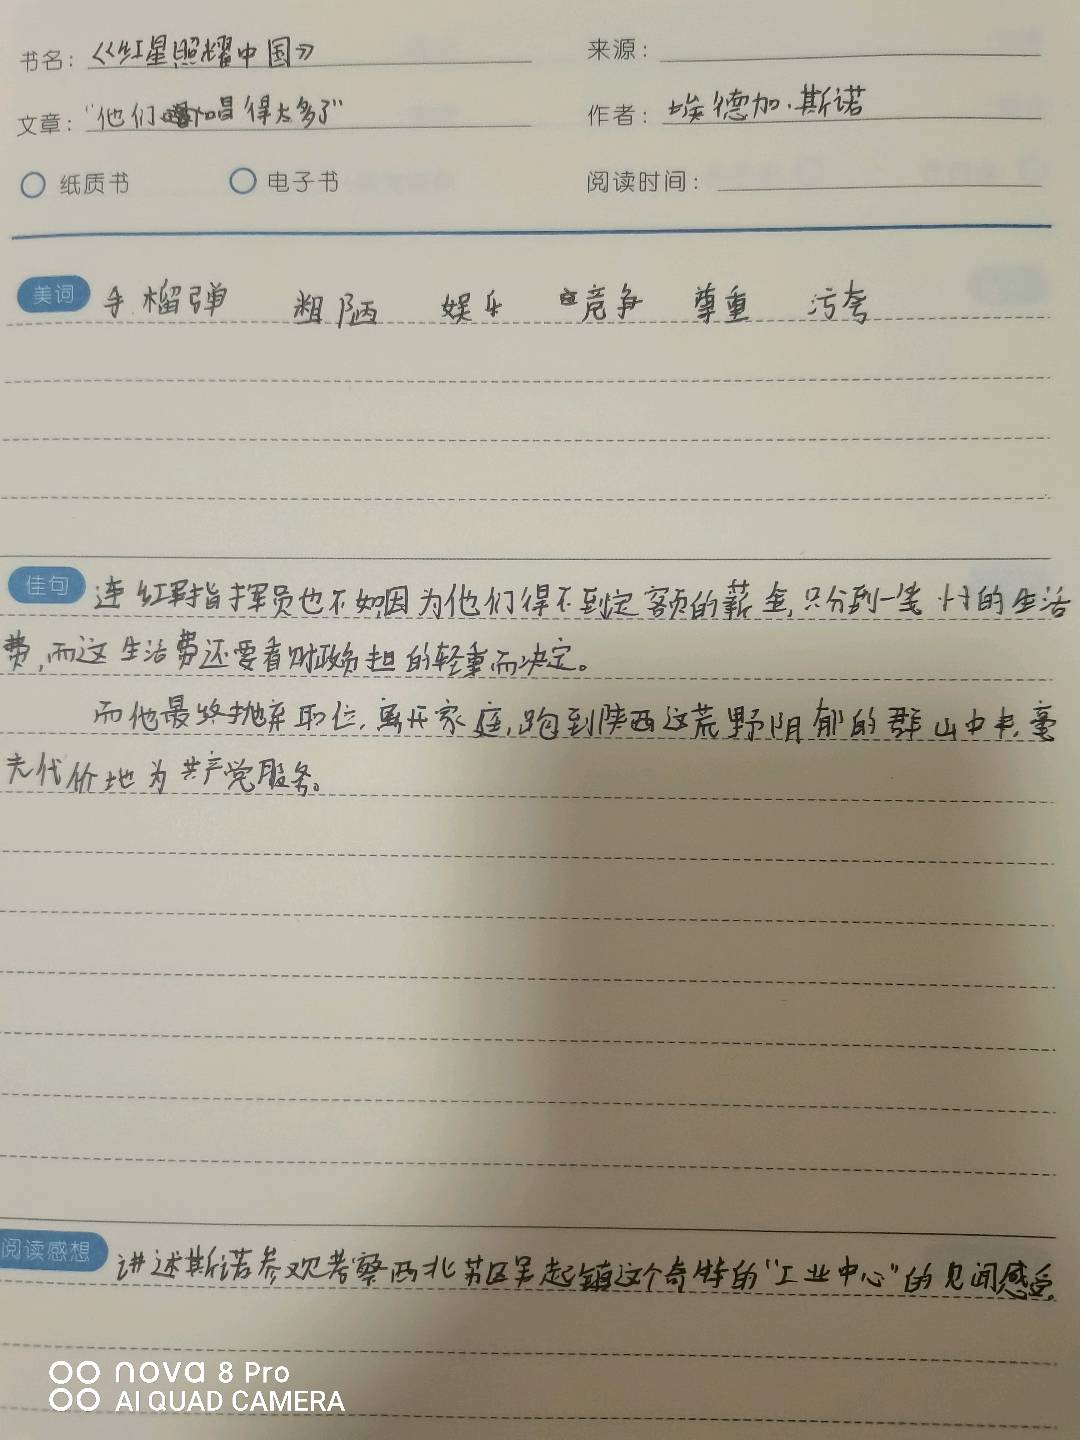 书名：《红星照耀中国》 来源：
文章："他们唱得太多了" 作者：埃德加·斯诺
纸质书 电子书 阅读时间：
美词 手榴弹 粗陋 娱乐 竞争 尊重 污夸
佳句 连红军指挥员也不如因为他们得不到定额的薪金,只分到一笔小的生活
费,而这生活费还要看财政负担的轻重而决定。
而他最终抛弃职位,离开家庭,跑到陕西这荒野阴郁的群山中来,毫
无代价地为共产党服务。
阅读感想 讲述斯诺参观考察西北苏区吴起镇这个奇特的"工业中心"的见闻感受,
nova 8 Pro
AI QUAD CAMERA